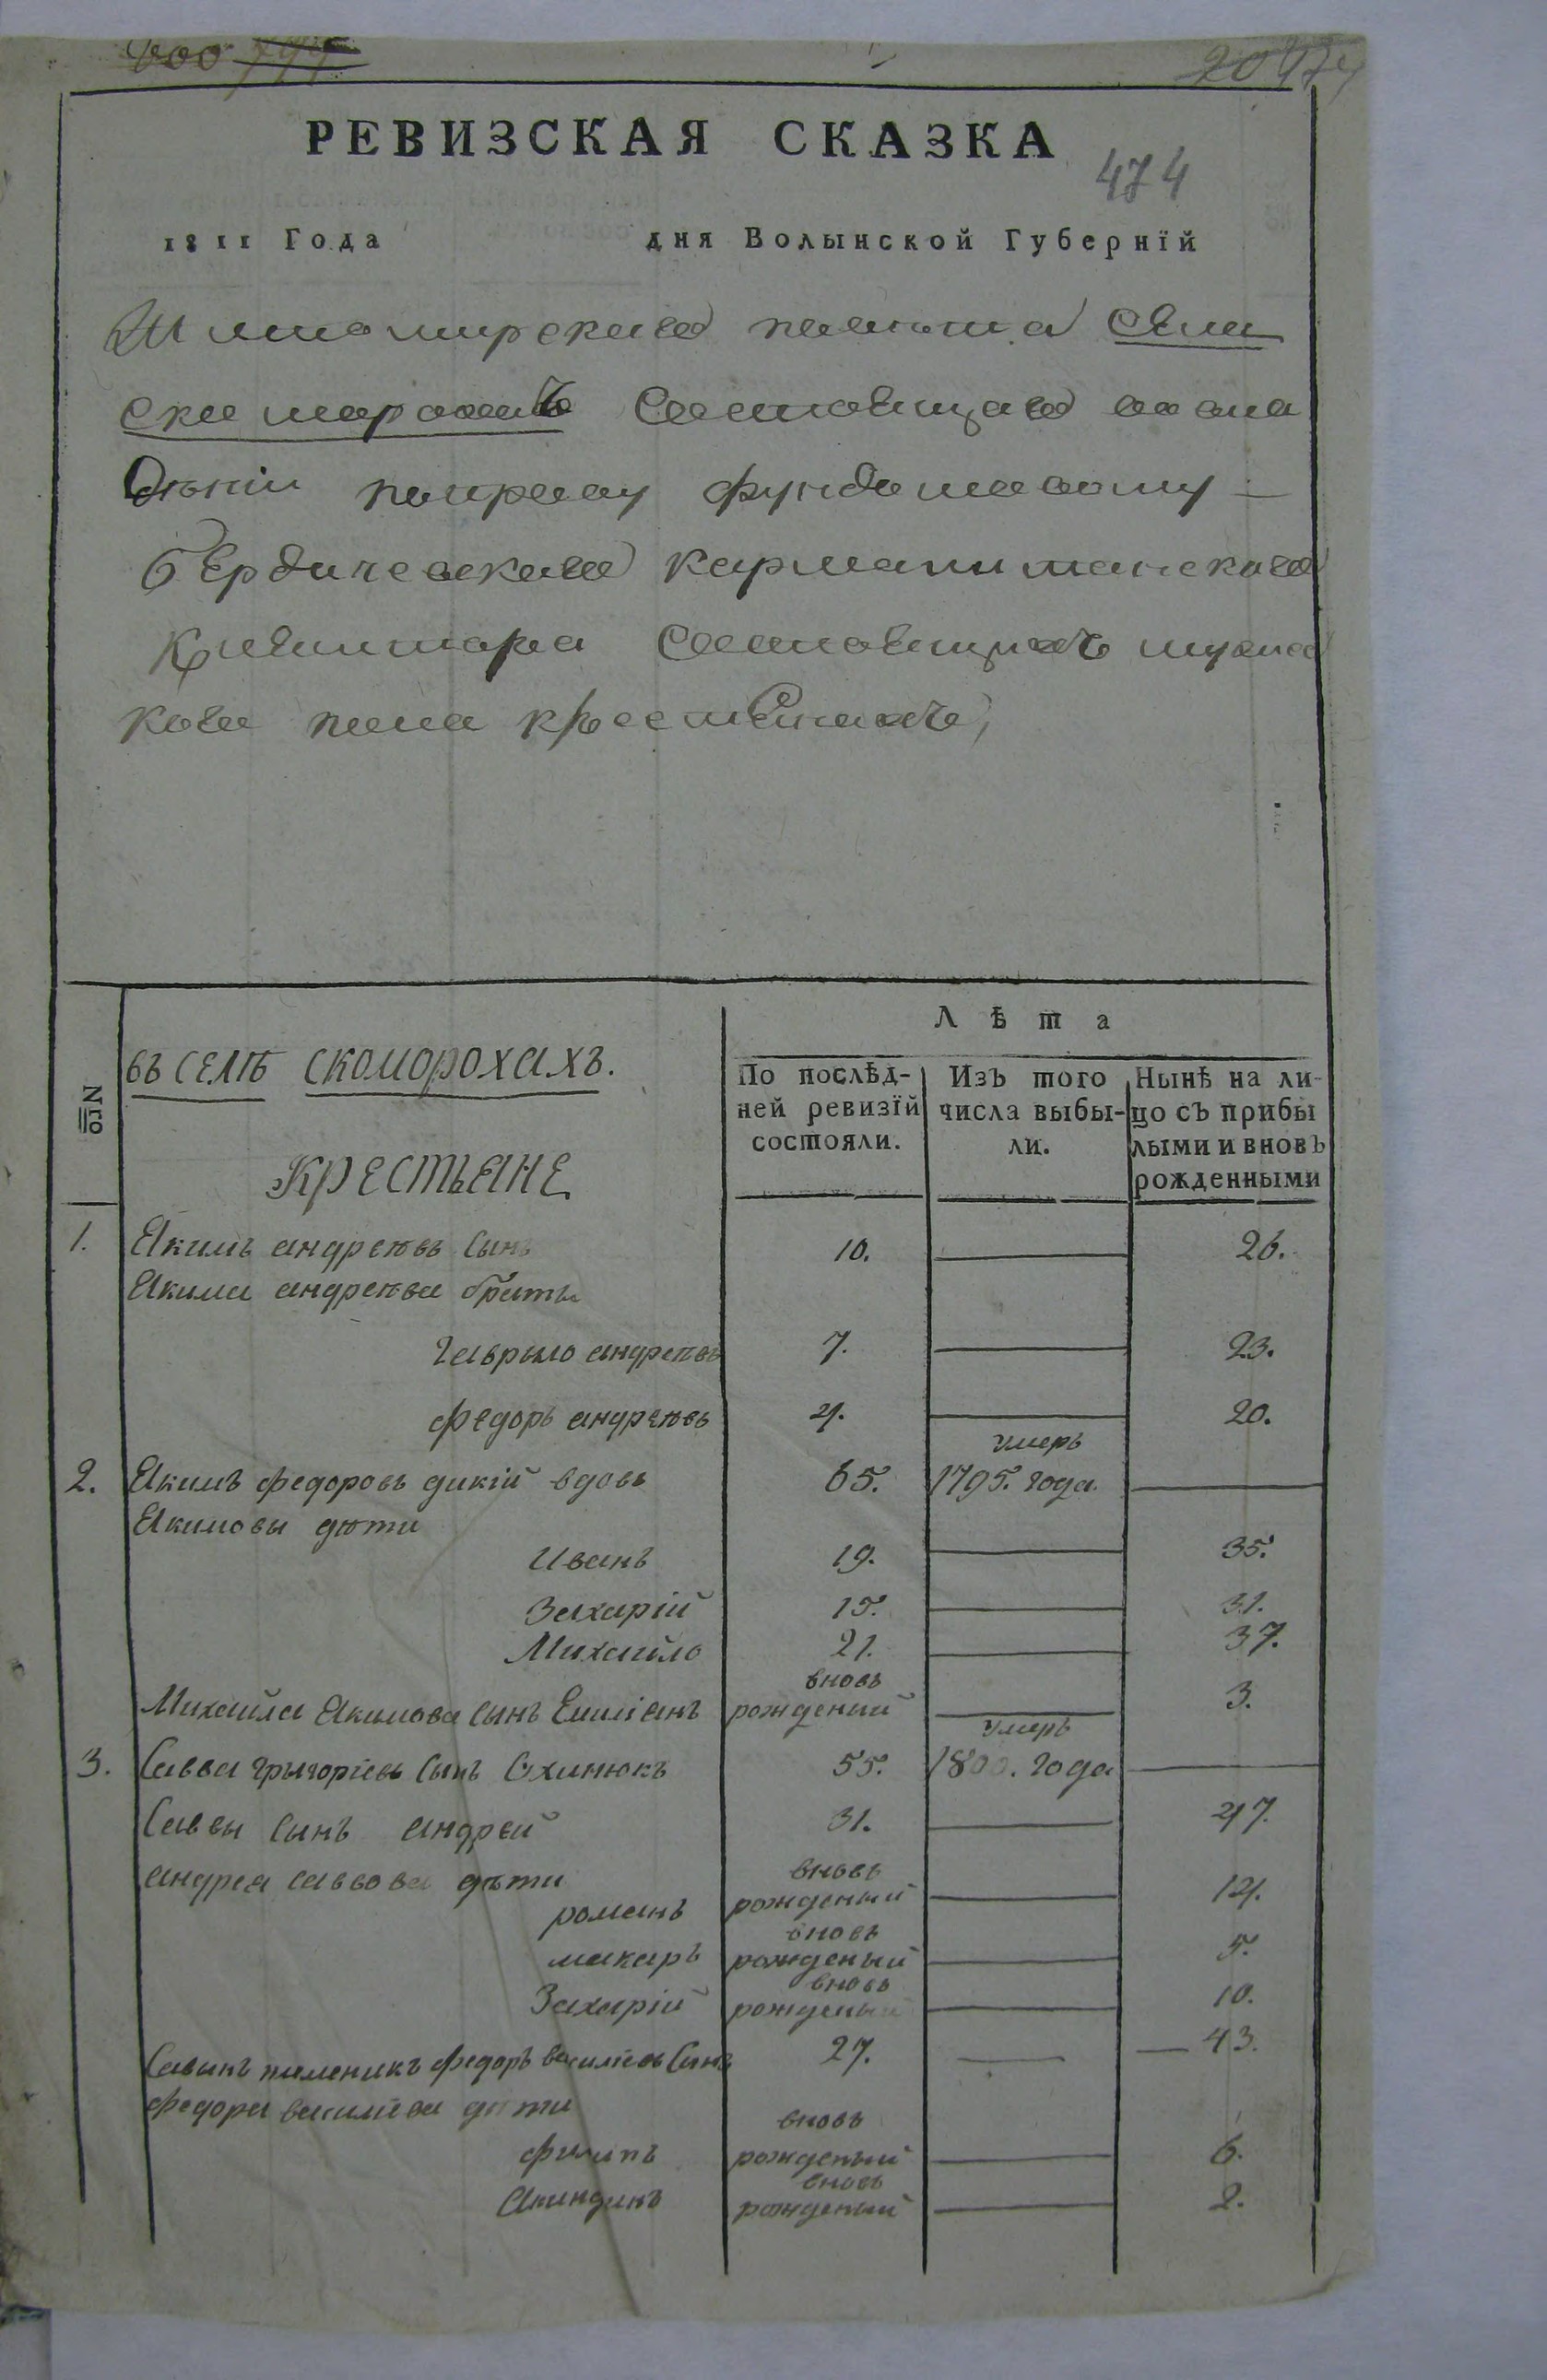 РЕВИЗСКАЯ СКАЗКА
474
1811 Года дня Волынской Губернїй
Житомирскаго повѣта села
скоморохъ состоящаго во вла
дѣніи поправу фундошовому
бердичевскаго кармалитанскаго
кляштора состоящихъ мужес
кого пола крестьянахъ,
№
въ селѣ скоморохахъ.
крестьяне
Лѣта
По послѣд-
ней ревизїй
состояли.
Изъ того
числа выбы-
ли.
Нынѣ на ли-
цо съ прибы
лыми и вновь
рожденными
1. Якимъ андрѣевъ сынъ 10. 26.
Якима андрѣева браты
гаврыло андрѣевъ 7. 23.
федоръ андрѣевъ 4. 20.
умеръ
2. Якимъ федоровъ дикій вдовъ 65. 1795. года.
Якимовы дѣти
иванъ 19. 35.
Захарій 15. 31.
Михайло 21. 37.
вновь
Михайла Якимова сынъ Емиліянъ рождений 3.
умеръ
3. Савва грыгоріевъ сынъ Охинюкъ 55. 1800. года
Саввы сынъ андрей 31. 47.
андрея саввова дѣти вновь
романъ рожденый 14.
вновь
макаръ рожденый 5.
вновь
Захарій рожденый 10.
Савынъ племеникъ федоръ василіевъ сынъ 27. 43.
федора василіева дѣти вновь
филипъ рожденый 6.
вновь
Акиндинъ рожденый 2.